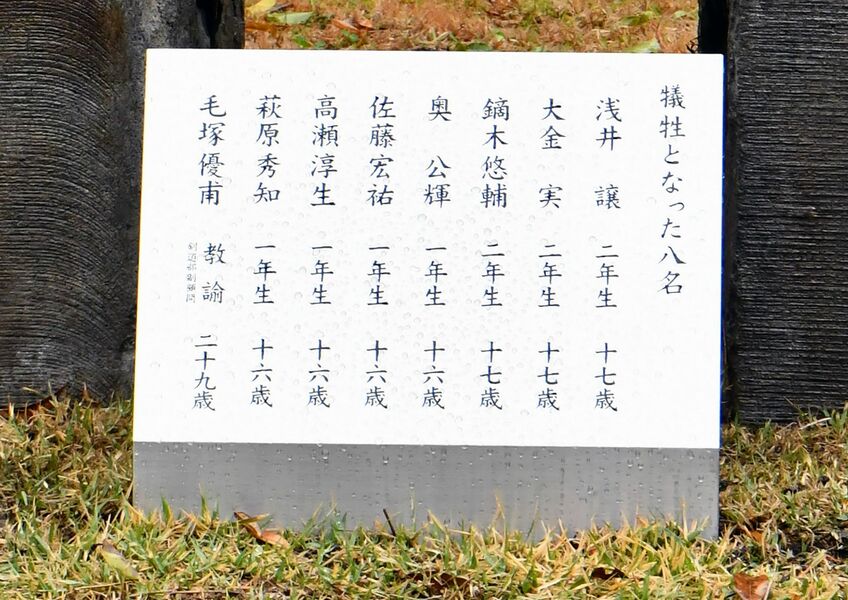 犠牲となった八名
浅井　譲　二年生　十七歳
大金　実　二年生　十七歳
鏑木悠輔　二年生　十七歳
奥　公輝　一年生　十六歳
佐藤宏祐　一年生　十六歳
高瀬淳生　一年生　十六歳
萩原秀知　一年生　十六歳
毛塚優甫　教諭　二十九歳
剣道部副顧問